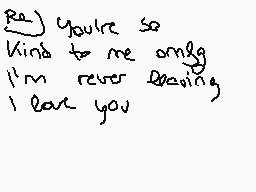 Re) you're so
kind to me omfg
I'm never leaving
I love you